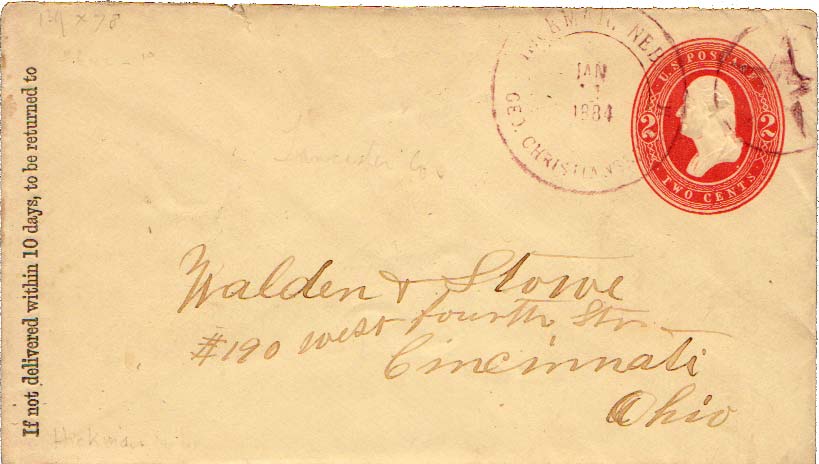 If not delivered within 10 days, to be returned to
NEB
JAN
1884
GEO. CHRISTIANS
U.S. POSTAGE
2 2
TWO CENTS
Lancaster Co
Walden & Stowe
#190 West Fourth Str
Cincinnati
Ohio